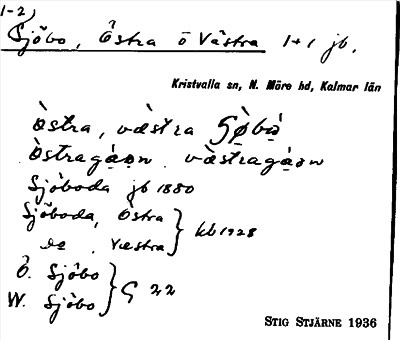 1-2)
Sjöbo, Östra o Västra 1+1 jb.
Kristvalla sn, N. Möre hd, Kalmar län
östra, västra
Sjöboda jb 1880
Sjöboda, Östra
do , Västra } kb 1928
Ö. Sjöbo
W. Sjöbo } G 22
STIG STJÄRNE 1936